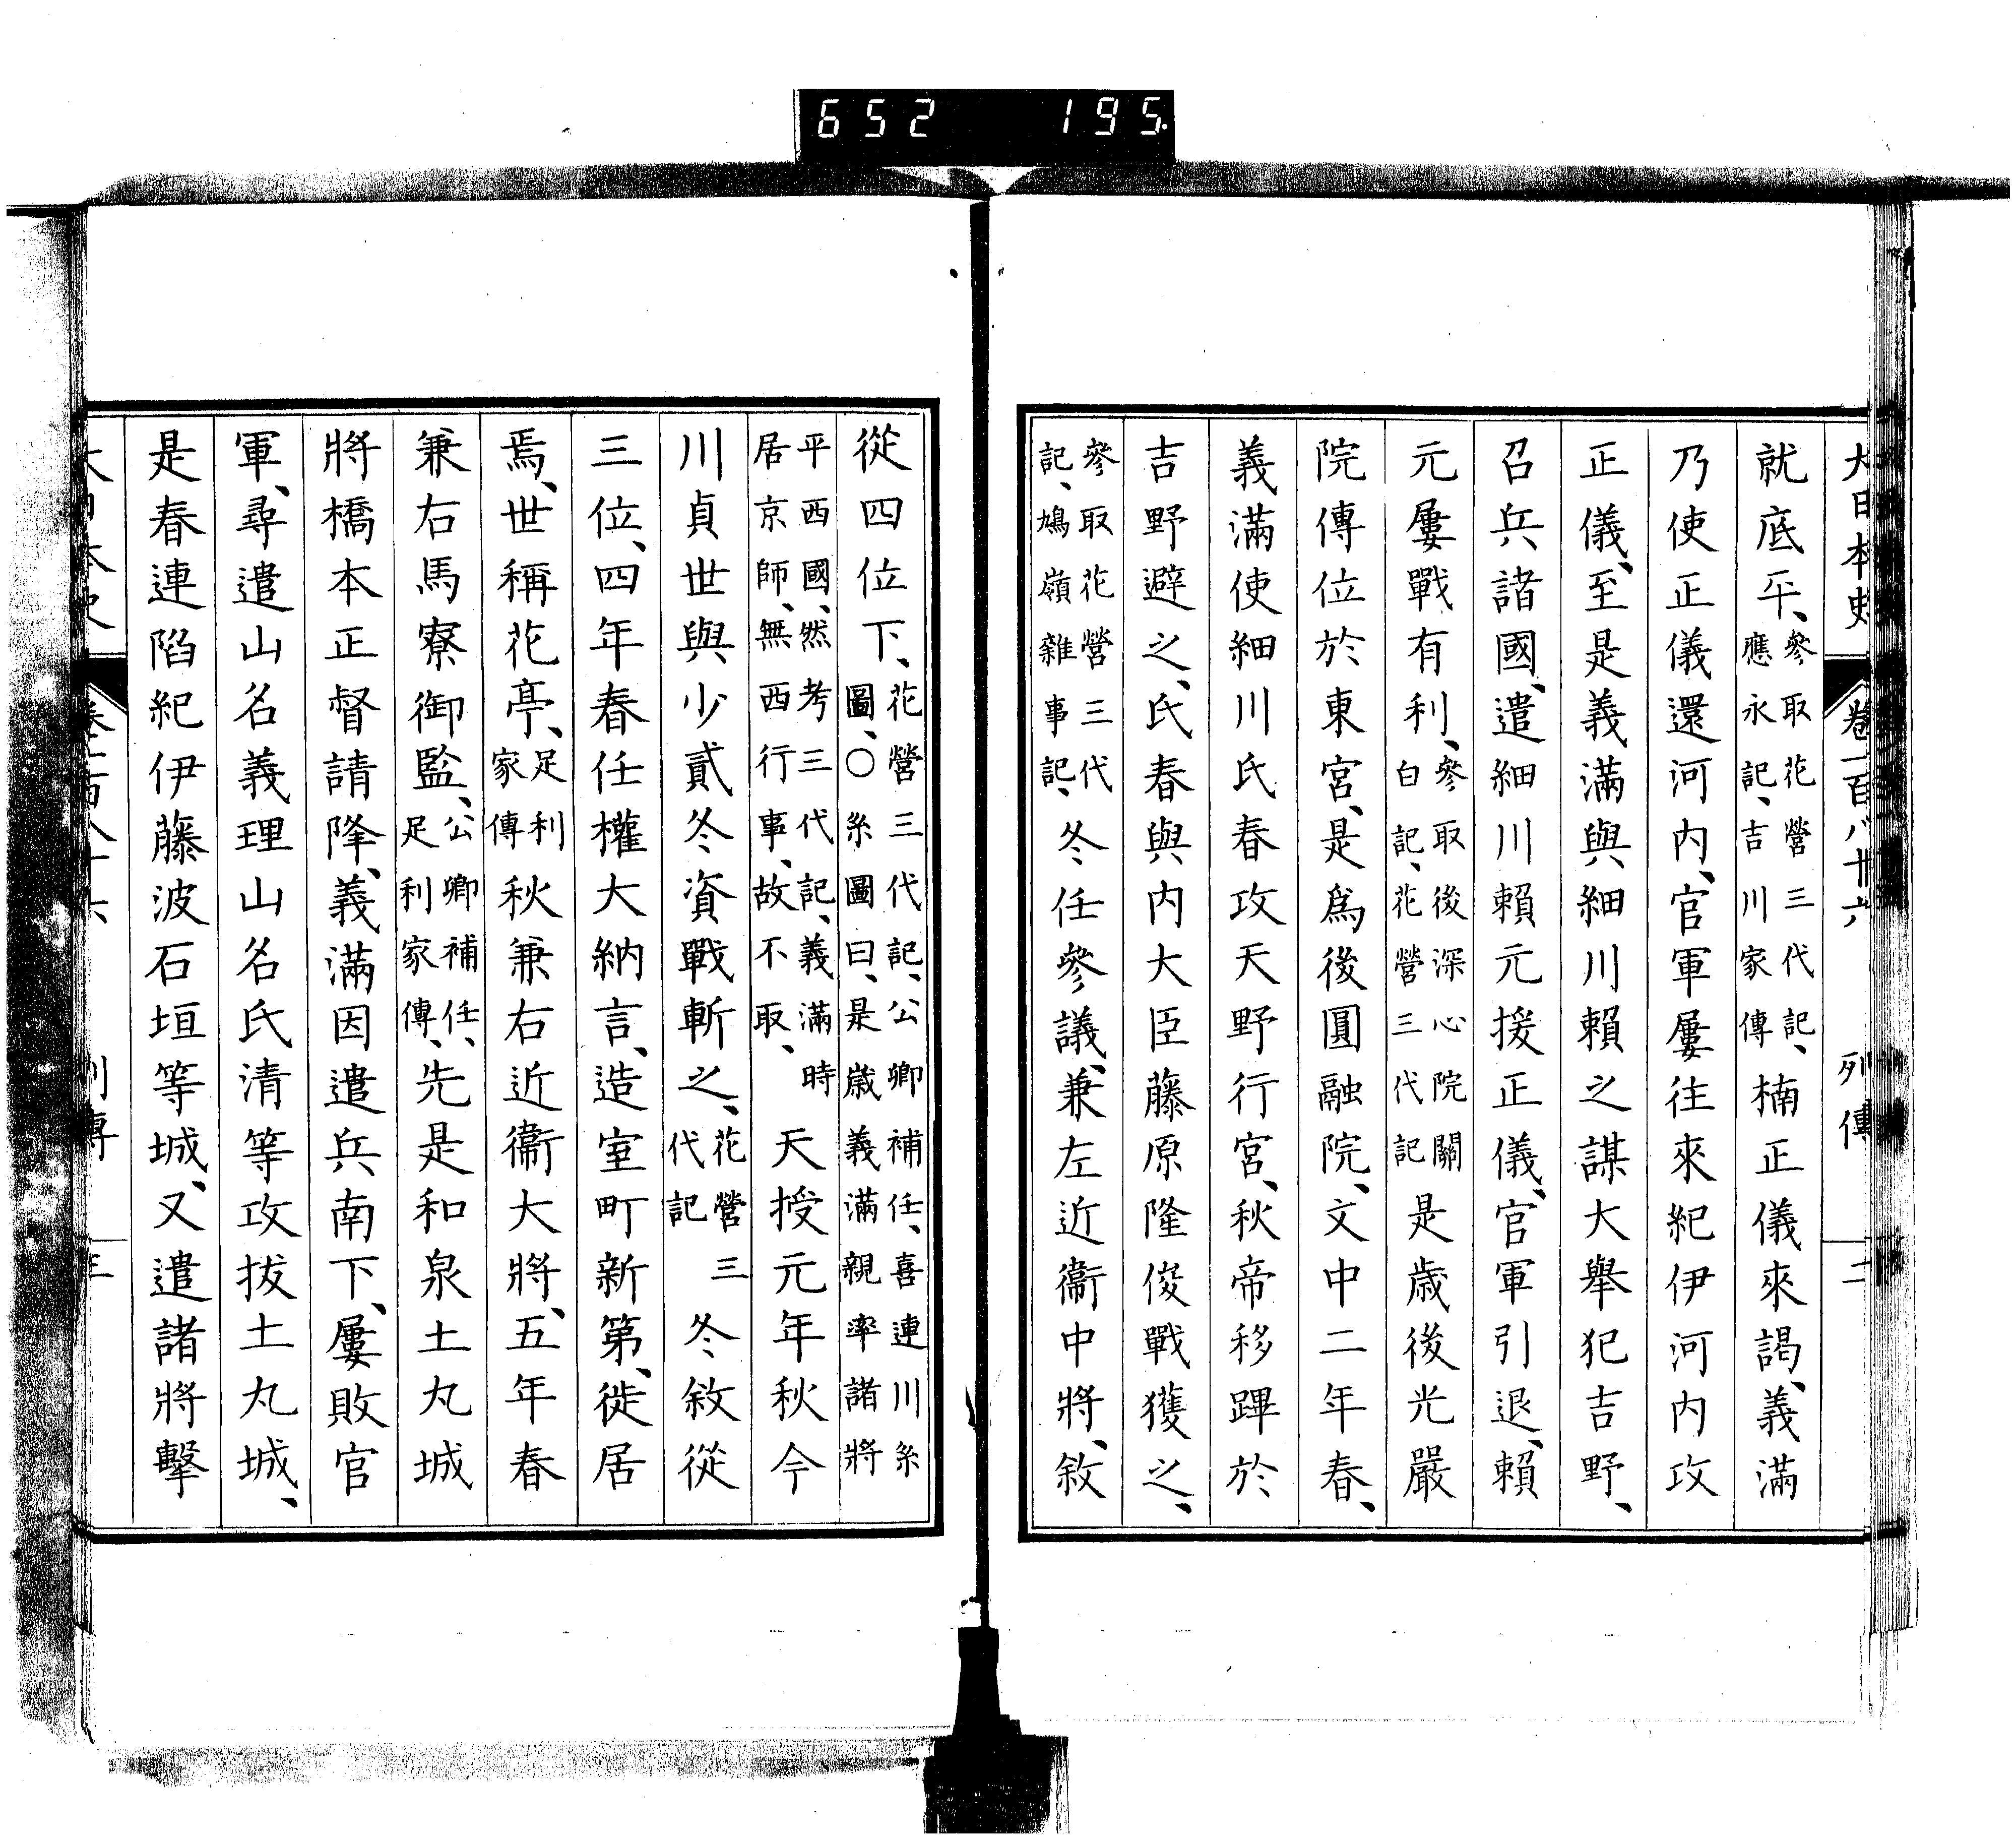 652 195
大日本史 卷一百八十六 列傳 二
就底平、參取花營三代記、應永記、吉川家傳楠正儀來謁、義滿
乃使正儀還河内、官軍屢往來紀伊河内攻
正儀、至是義滿與細川賴之謀大舉犯吉野、
召兵諸國、遣細川賴元援正儀、官軍引退、賴
元屢戰有利、參取後深心院關白記、花營三代記是歳後光嚴
院傳位於東宮、是爲後圓融院、文中二年春、
義滿使細川氏春攻天野行宮、秋帝移蹕於
吉野避之、氏春與内大臣藤原隆俊戰獲之、
參取花營三代記、鳩嶺雜事記、冬任參議、兼左近衞中將、敘
從四位下、花營三代記、公卿補任、喜連川系圖、○系圖曰、是歳義滿親率諸將
平西國、然考三代記、義滿時居京師、無西行事、故不取、天授元年秋今
川貞世與少貳冬資戰斬之、花營三代記冬敘從
三位、四年春任權大納言、造室町新第、徙居
焉、世稱花亭、足利家傳秋兼右近衞大將、五年春
兼右馬寮御監、公卿補任、足利家傳、先是和泉土丸城
將橋本正督請降、義滿因遣兵南下、屢敗官
軍、尋遣山名義理山名氏清等攻拔土丸城、
是春連陷紀伊藤波石垣等城、又遣諸將擊
大日本史 卷一百八十六 列傳 三